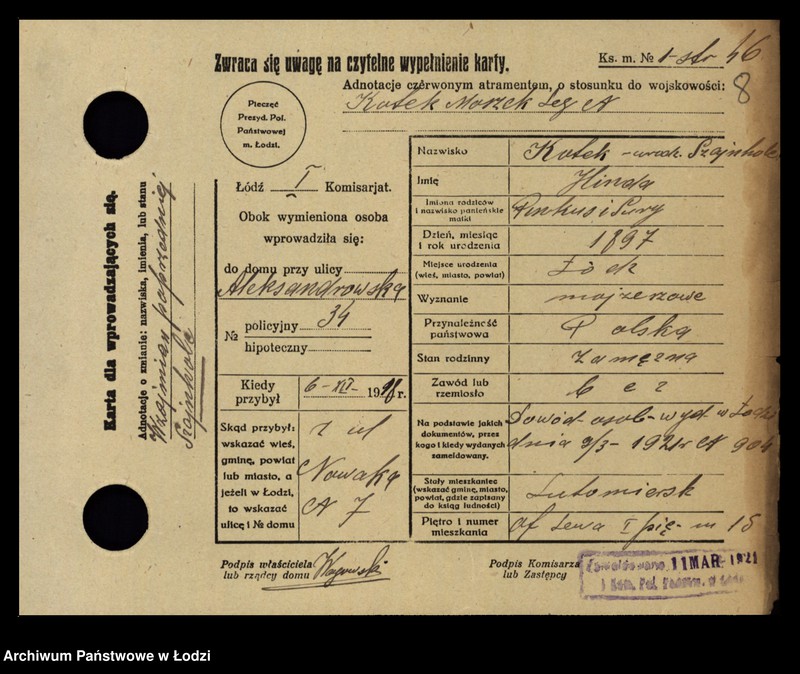 Zwraca się uwagę na czytelne wypełnienie karty.
Ks. m. № 1-str 46
8
Adnotacje czerwonym atramentem, o stosunku do wojskowości:
Kotek Moszek
Pieczęć
Prezyd. Pol.
Państwowej
m. Łodzi.
Łódź I Komisarjat.
Obok wymieniona osoba
wprowadziła się:
do domu przy ulicy
Aleksandrowska
№ policyjny 34
hipoteczny
Kiedy przybył 6-XII- 1918 r.
Skąd przybył:
wskazać wieś,
gminę, powiat
lub miasto, a
jeżeli w Łodzi,
to wskazać
ulicę i № domu
z ul
Nowaka
N 7
Nazwisko Kotek - urodz.
Imię Hinda
Imiona rodziców
i nazwisko panieńskie
matki
Pinkus i Sury
Dzień, miesiąc
i rok urodzenia
1897
Miejsce urodzenia
(wieś, miasto, powiat)
Łódź
Wyznanie mojżeszowe
Przynależność
państwowa
Polska
Stan rodzinny zamężna
Zawód lub
rzemiosło
bez
Na podstawie jakich
dokumentów, przez
kogo i kiedy wydanych
zameldowany.
Dowód osob- wyd w Łodzi
dnia 9/3- 1921r N 904
Stały mieszkaniec
(wskazać gminę, miasto,
powiat, gdzie zapisany
do ksiąg ludności)
Lutomiersk
Piętro i numer
mieszkania
of lewa I pię- m 15
Podpis właściciela
lub rządcy domu
Podpis Komisarza
lub Zastępcy
Zameldowano 11 MAR 1921
I Kom. Pol. Państw. w Łodzi
Karta dla wprowadzających się.
Adnotacje o zmianie: nazwiska, imienia, lub stanu
poprzednio
Archiwum Państwowe w Łodzi